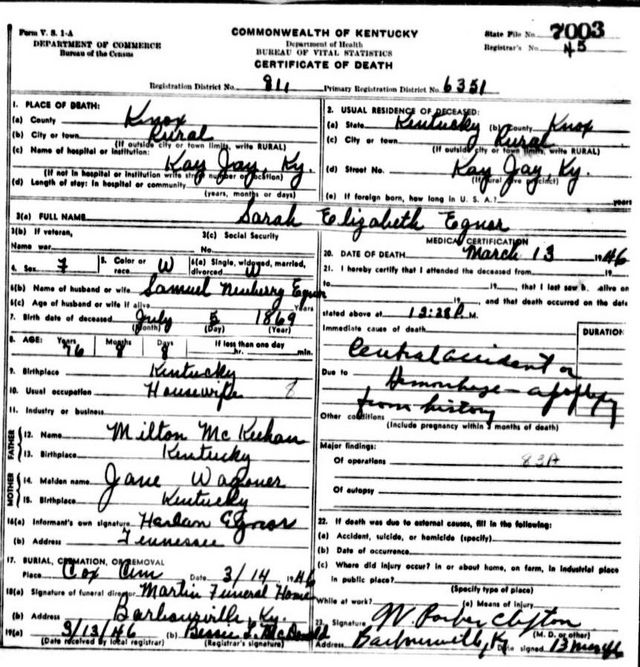 Form V. S. 1-A
DEPARTMENT OF COMMERCE
Bureau of the Census
COMMONWEALTH OF KENTUCKY
Department of Health
BUREAU OF VITAL STATISTICS
CERTIFICATE OF DEATH
State File No. 7003
Registrar's No. 45
Registration District No. 811 Primary Registration District No. 6351
1. PLACE OF DEATH:
(a) County Knox
(b) City or town Rural
(If outside city or town limits, write RURAL)
(c) Name of hospital or institution:
Kay Jay, Ky.
(If not in hospital or institution write street number or location)
(d) Length of stay: In hospital or community
(years, months or days)
2. USUAL RESIDENCE OF DECEASED:
(a) State Kentucky (b) County Knox
(c) City or town Rural
(If outside city or town limits, write RURAL)
(d) Street No. Kay Jay, Ky.
(If rural give precinct)
(e) If foreign born, how long in U. S. A.? years
3(a) FULL NAME Sarah Elizabeth Egnor
3(b) If veteran,
Name war
3(c) Social Security
No.
4. Sex F 5. Color or race W 6(a) Single, widowed, married, divorced W
6(b) Name of husband or wife Samuel Newberry Egnor
6(c) Age of husband or wife if alive Years
7. Birth date of deceased July 5 1869
(Month) (Day) (Year)
8. AGE: Years 76 Months 8 Days 8 If less than one day hr. min.
9. Birthplace Kentucky
10. Usual occupation Housewife
11. Industry or business
FATHER
12. Name Milton McKeehan
13. Birthplace Kentucky
MOTHER
14. Maiden name Jane Wagoner
15. Birthplace Kentucky
16(a) Informant's own signature Harlan Egnor
(b) Address Tennessee
17. BURIAL, CREMATION, OR REMOVAL
Place Cox Cem Date 3/14 1946
18(a) Signature of funeral director Martin Funeral Home
(b) Address Barbourville, Ky.
19(a) 3/13/46 (b) Bessie L. McDonald
(Date received by local registrar) (Registrar's signature)
MEDICAL CERTIFICATION
20. DATE OF DEATH March 13 1946
21. I hereby certify that I attended the deceased from 19
to 19 , that I last saw h alive on
19 , and that death occurred on the date
stated above at 12:28 P. M.
Immediate cause of death DURATION
accident or
Due to Hemorrhage - apoplexy
from history
Other conditions
(Include pregnancy within 3 months of death)
Major findings:
Of operations 83A
Of autopsy
22. If death was due to external causes, fill in the following:
(a) Accident, suicide, or homicide (specify)
(b) Date of occurrence
(c) Where did injury occur? In or about home, on farm, in industrial place
in public place?
(Specify type of place)
While at work? (e) Means of injury
23. Signature W. Parker Clifton
(M. D. or other)
Address Barbourville, Ky Date signed 13 Mar 46